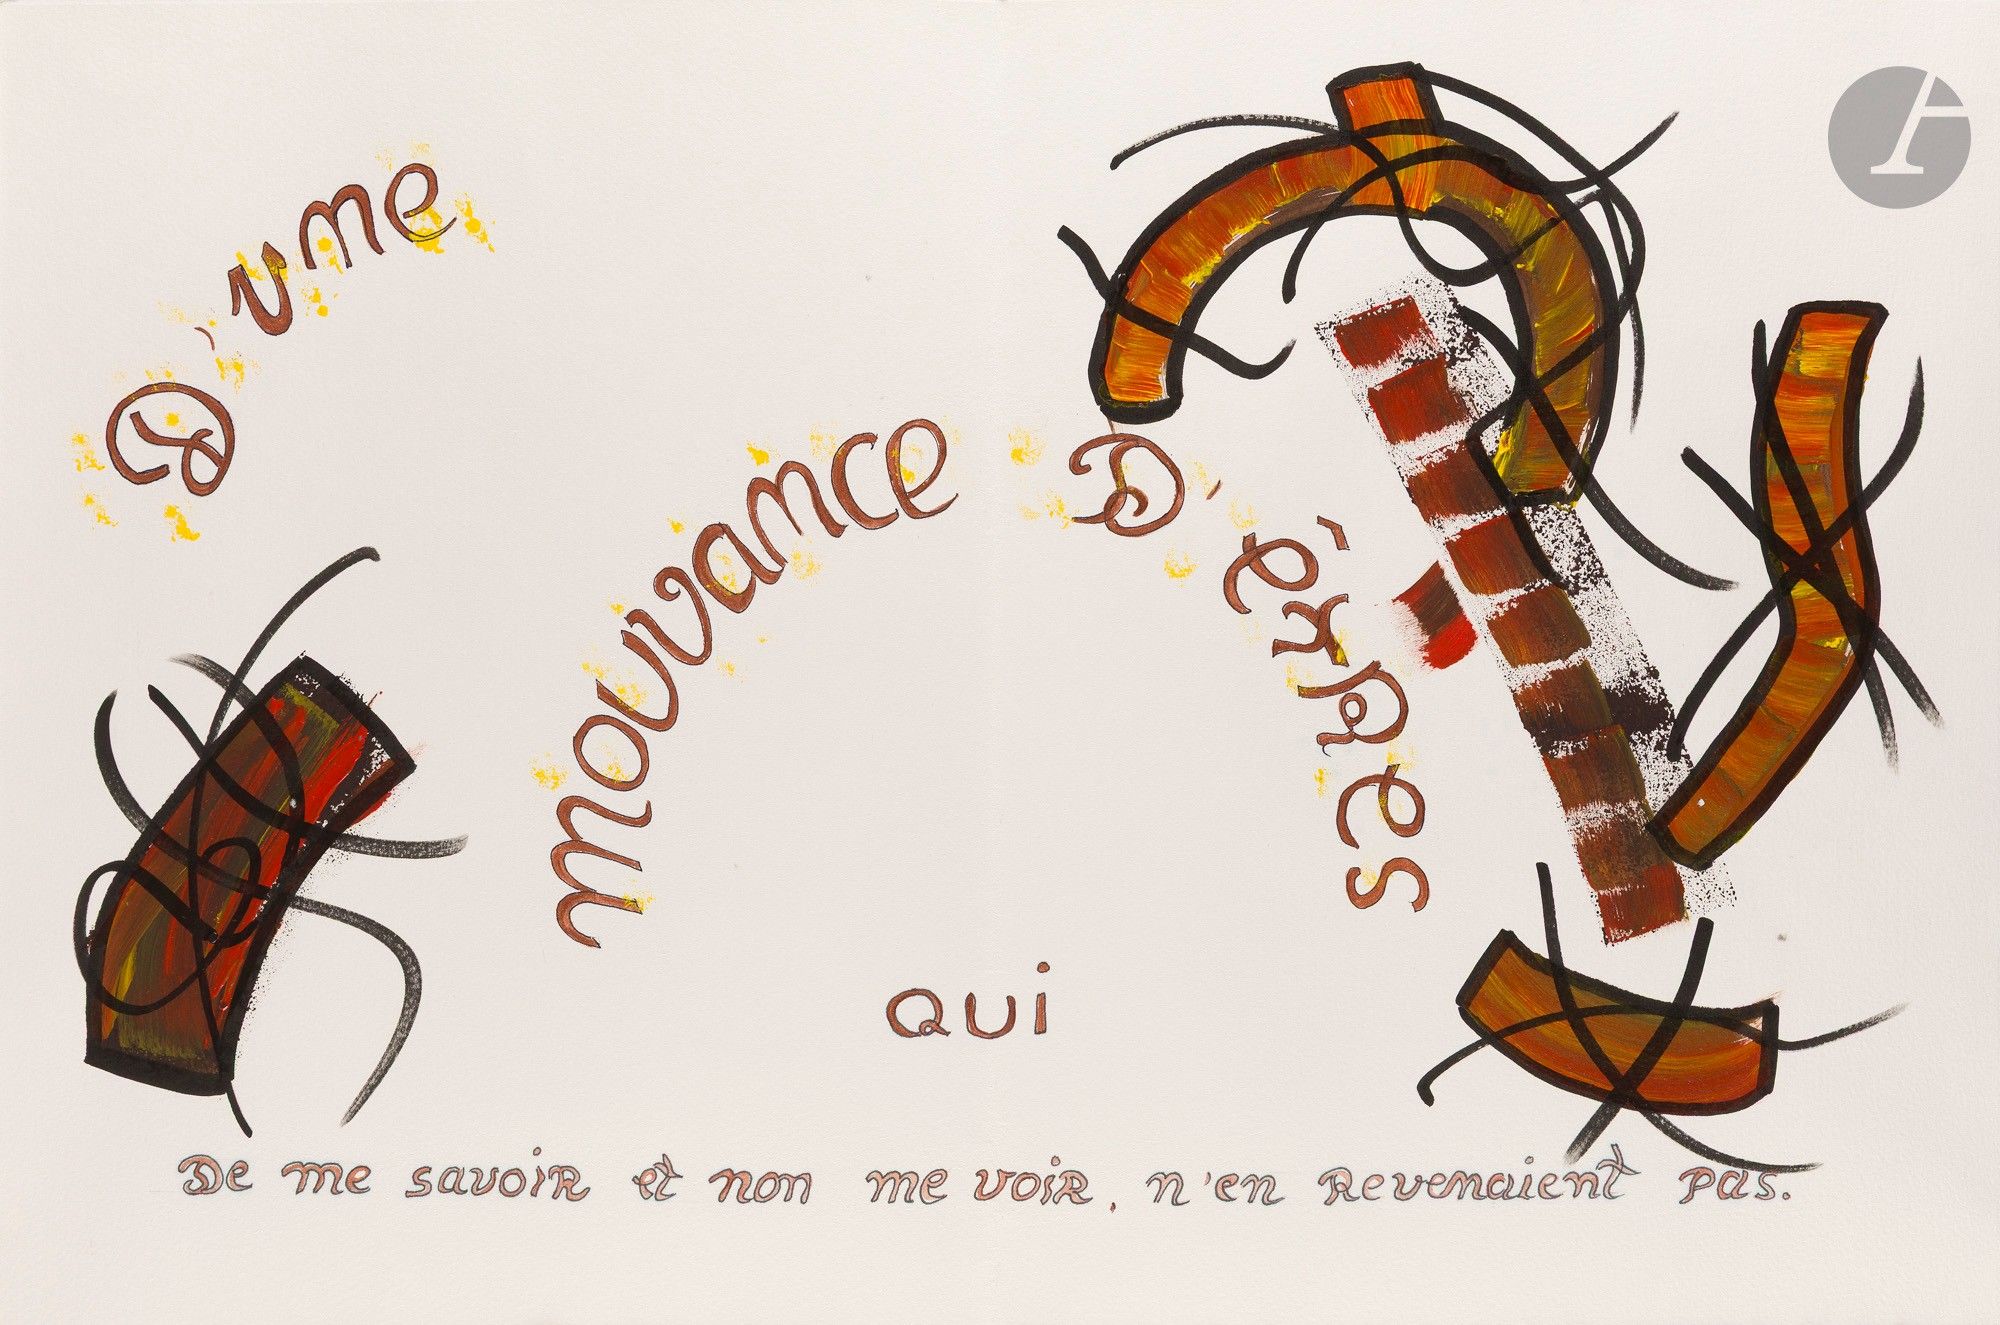 D'une
mouvance D'êtres
qui
De me savoir et non me voir, n'en Revenaient pas.